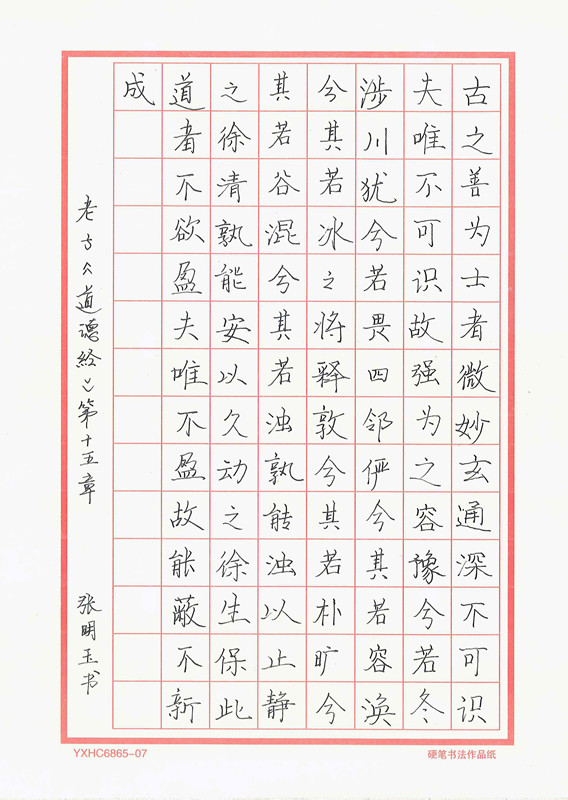 古之善为士者微妙玄通深不可识
夫唯不可识故强为之容豫兮若冬
涉川犹兮若畏四邻俨兮其若容涣
兮其若冰之将释敦兮其若朴旷兮
其若谷混兮其若浊孰能浊以止静
之徐清孰能安以久动之徐生保此
道者不欲盈夫唯不盈故能蔽不新
成
老子《道德经》第十五章
张明玉书
YXHC6865-07
硬笔书法作品纸